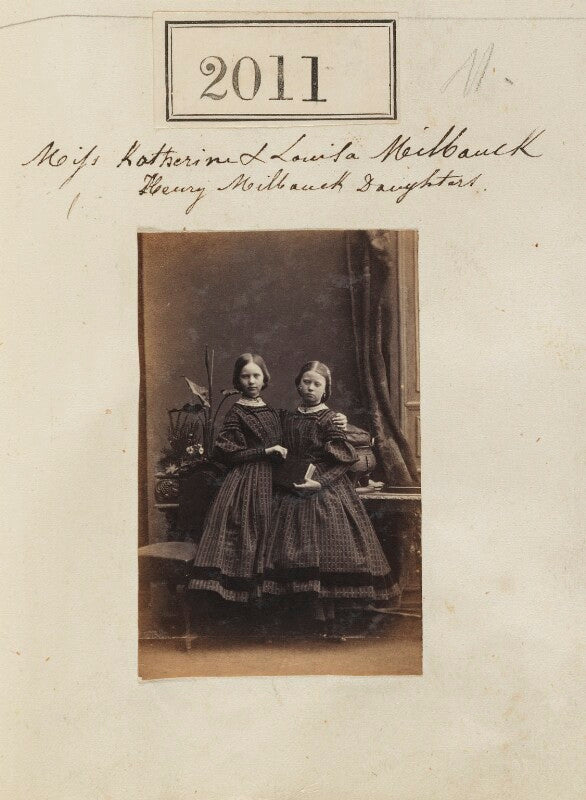 2011
11.
Miss Katherine & Louisa Milbanck
Henry Milbanck Daughters.